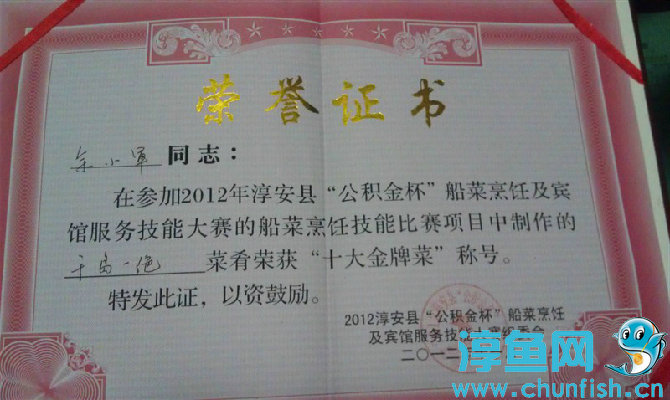 荣誉证书
余小军 同志：
在参加2012年淳安县“公积金杯”船菜烹饪及宾
馆服务技能大赛的船菜烹饪技能比赛项目中制作的
千岛一绝 菜肴荣获“十大金牌菜”称号。
特发此证，以资鼓励。
2012淳安县“公积金杯”船菜烹饪
及宾馆服务技能大赛组委会
二〇一二
淳鱼网
www.chunfish.cn